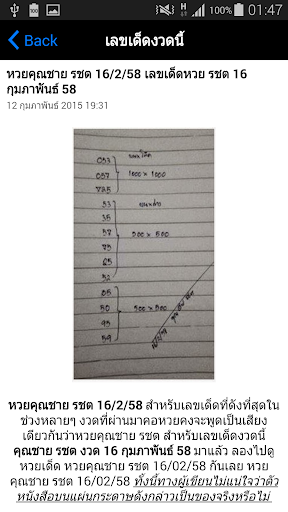 100%
01:47
Back
เลขเด็ดงวดนี้
หวยคุณชาย รชต 16/2/58 เลขเด็ดหวย รชต 16
กุมภาพันธ์ 58
12 กุมภาพันธ์ 2015 19:31
053
057 1000 x 1000
735
53
35
57 500 x 500
75
52
05
50 500 x 500
95
59
หวยคุณชาย รชต 16/2/58 สำหรับเลขเด็ดที่ดังที่สุดใน
ช่วงหลายๆ งวดที่ผ่านมาคอหวยคงจะพูดเป็นเสียง
เดียวกันว่าหวยคุณชาย รชต สำหรับเลขเด็ดงวดนี้
คุณชาย รชต งวด 16 กุมภาพันธ์ 58 มาแล้ว ลองไปดู
หวยเด็ด หวยคุณชาย รชต 16/02/58 กันเลย หวย
คุณชาย รชต 16/02/58 ทั้งนี้ทางผู้เขียนไม่แน่ใจว่าตัว
หนังสือบนแผ่นกระดาษดังกล่าวเป็นของจริงหรือไม่